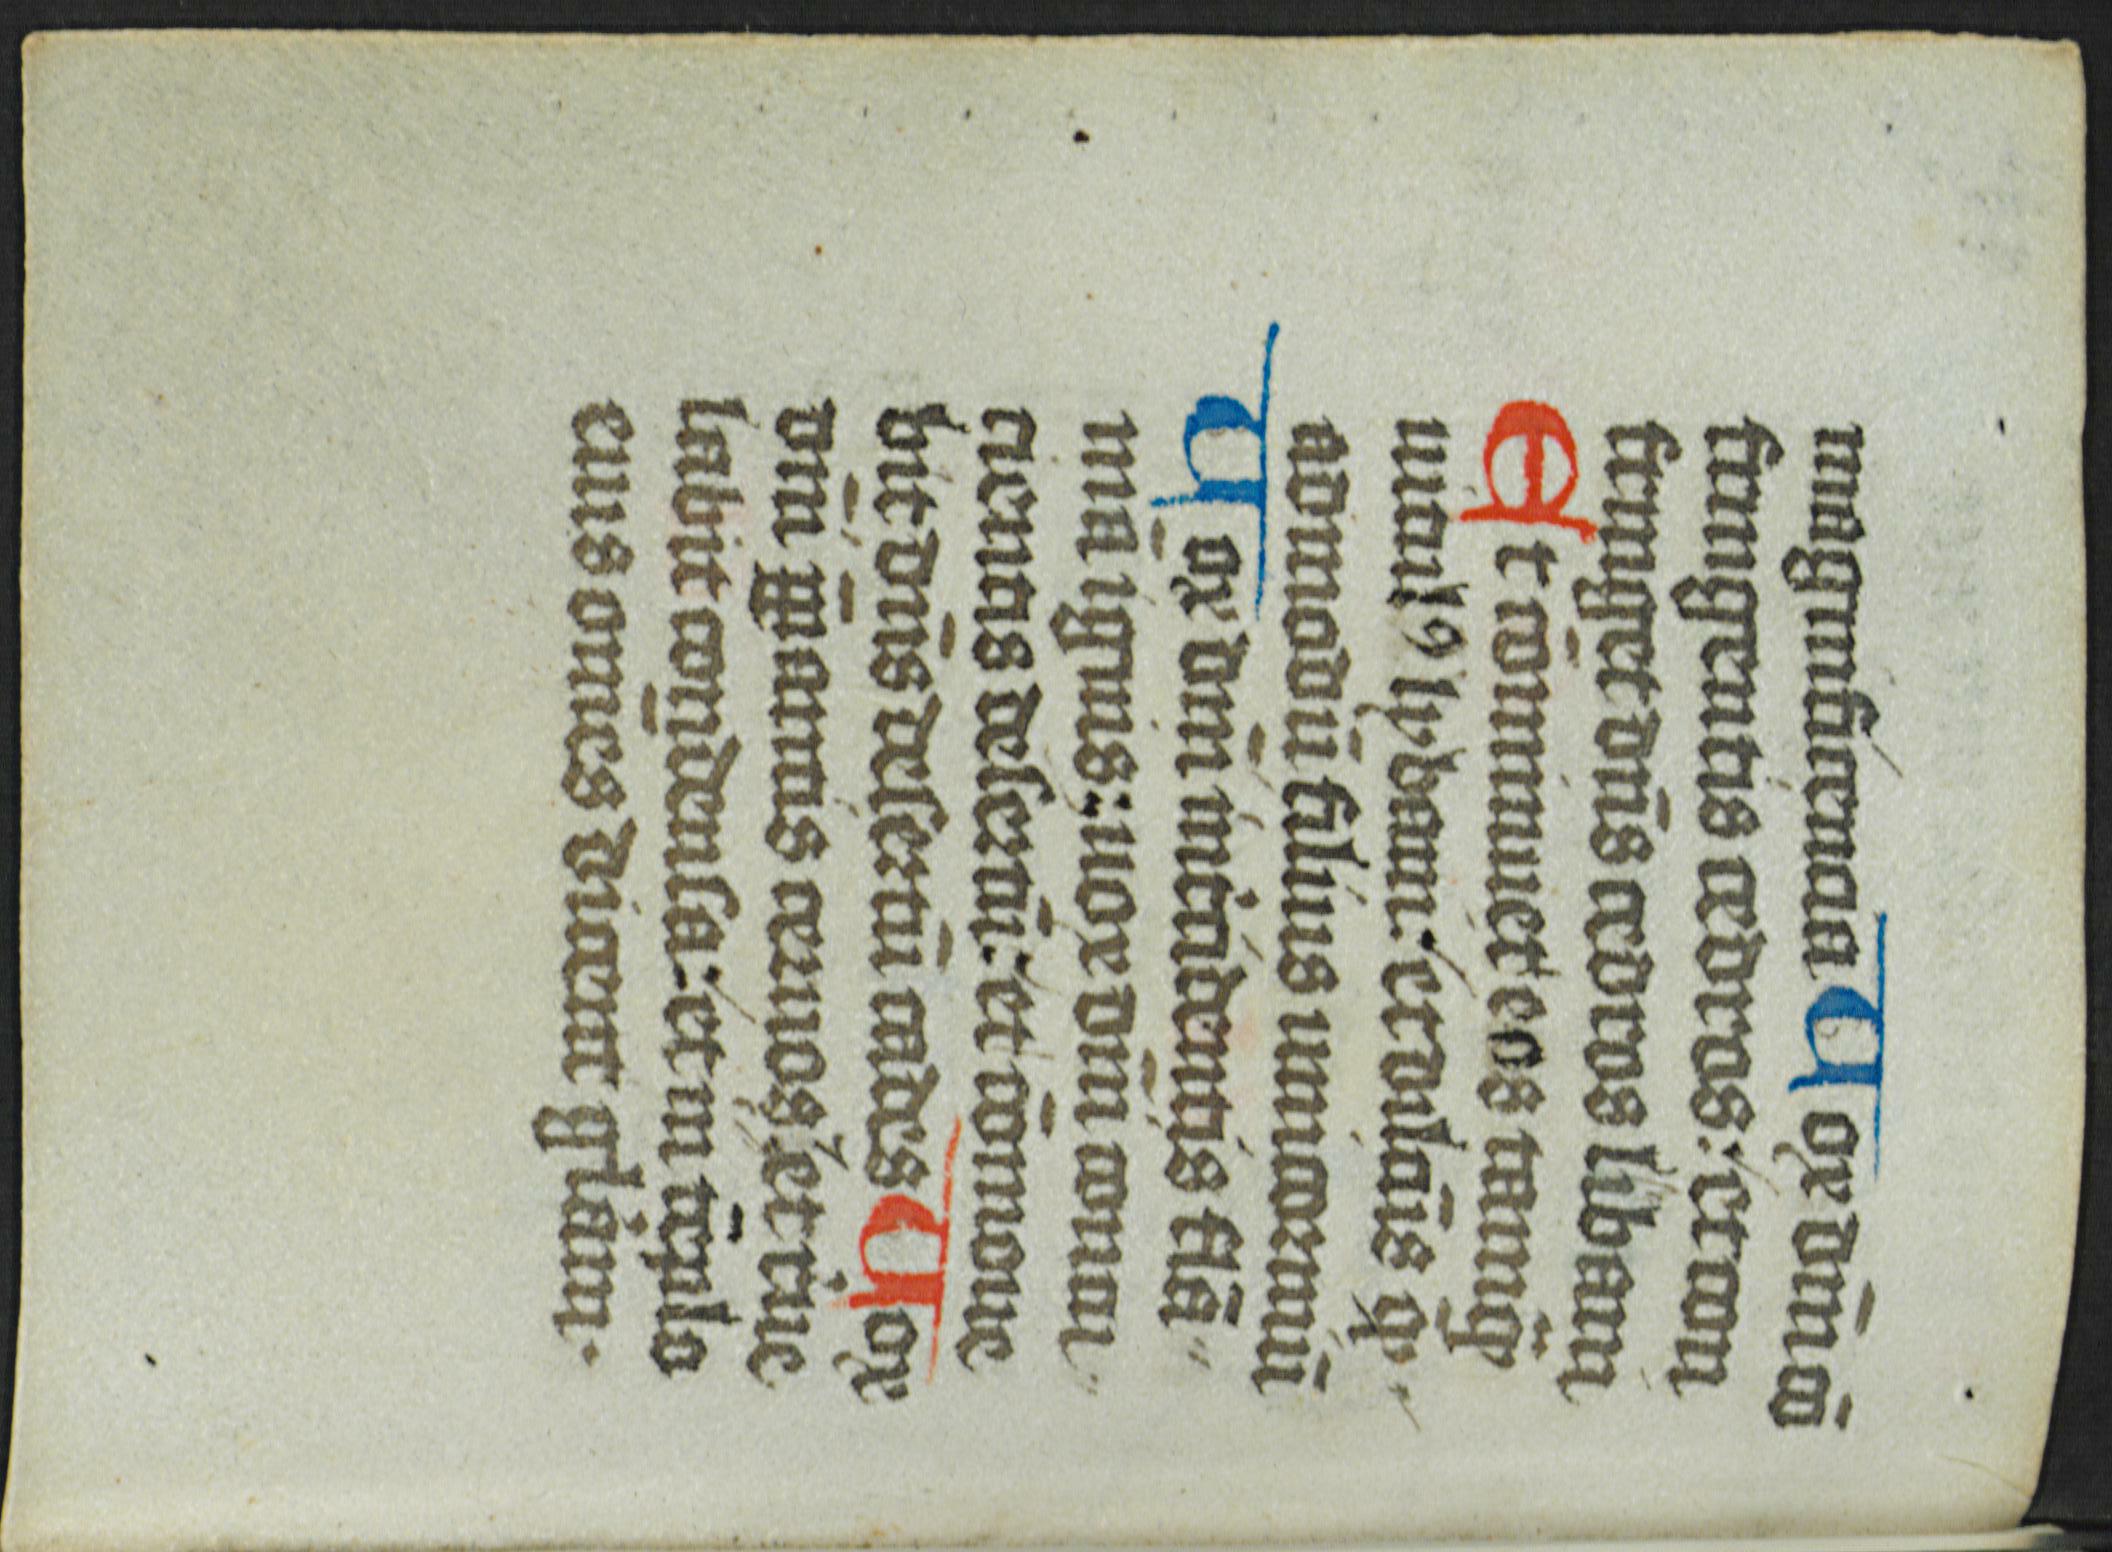 magnificencia Vox dn̄i cō
fringentis cedros: et con
fringet dn̄s cedros libani
Et cōminuet eos tamq̄
uitul9 lybani: et dilc̄us q̄
admodū filius unicorniū
Vox dn̄i intercidentis flā
ma ignis: uox dn̄i concu
cientis desertū: et cōmoue
bit dn̄s desertū cades Vox
dn̄i p̄parantis ceruos et reue
labit cōdensa: et in tēplo
eius omnes dicent gl̄iam.